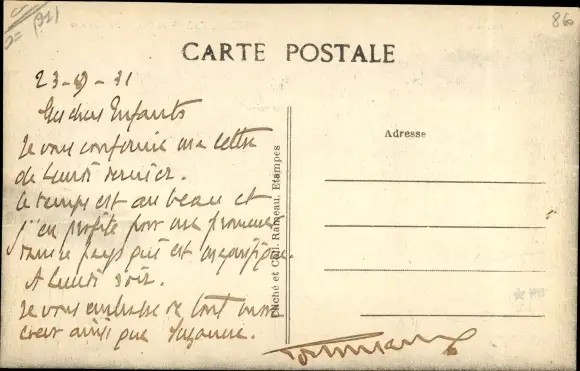 (91)
86
CARTE POSTALE
23-9-31
Mes chers Enfants
Je vous confirme ma lettre
de lundi dernier.
Le temps est au beau et
j'en profite pour me promener
dans ce pays qui est magnifique.
A lundi soir.
Je vous embrasse de tout mon
coeur ainsi que Suzanne.
Adresse
Cliché et Coll. Rameau, Etampes